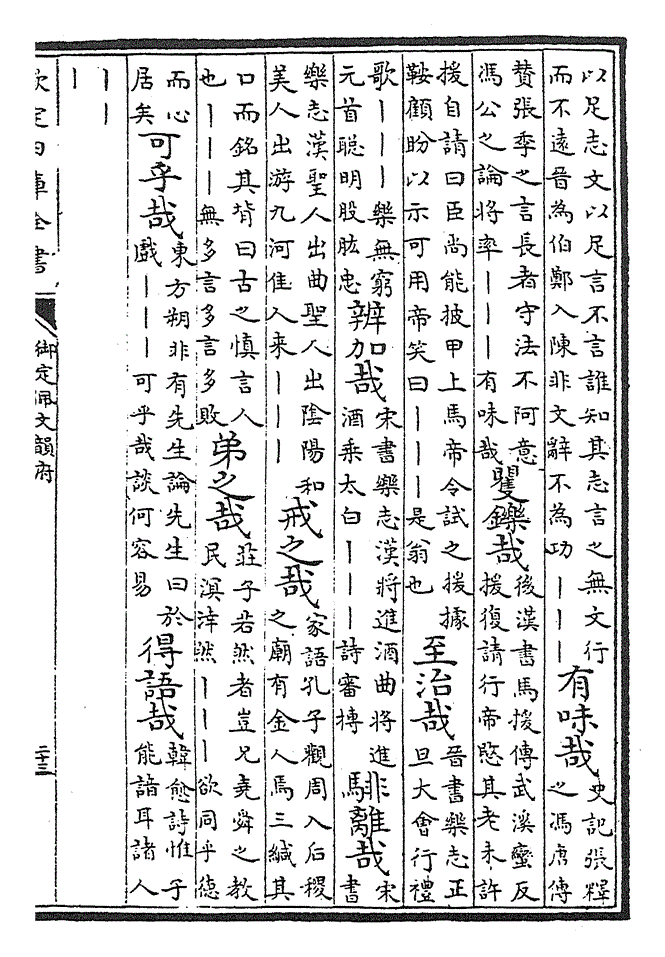 以足志文以足言不言誰知其志言之無文行
而不遠晉為伯鄭入陳非文辭不為功｜｜｜
有味哉
史記張釋
之馮唐傳
贊張季之言長者守法不阿意
馮公之論將率｜｜｜有味哉
矍鑠哉
後漢書馬援傳武溪蠻反
援復請行帝愍其老未許
援自請曰臣尚能披甲上馬帝令試之援據
鞍顧盼以示可用帝笑曰｜｜｜是翁也
至治哉
晉書樂志正
旦大會行禮
歌｜｜｜樂無窮
元首聰明股肱忠
辨加哉
宋書樂志漢將進酒曲將進
酒乘太白｜｜｜詩審搏
騑離哉
宋
書
樂志漢聖人出曲聖人出陰陽和
美人出游九河佳人來｜｜｜
戒之哉
家語孔子觀周入后稷
之廟有金人焉三緘其
口而銘其背曰古之慎言人
也｜｜｜無多言多言多敗
弟之哉
莊子若然者豈兄堯舜之教
民溟涬然｜｜｜欲同乎德
而心
居矣
可乎哉
東方朔非有先生論先生曰於
戲｜｜｜可乎哉談何容易
得語哉
韓愈詩惟子
能諳耳諸人
｜｜
｜
欽定四庫全書
御定佩文韻府
二十三